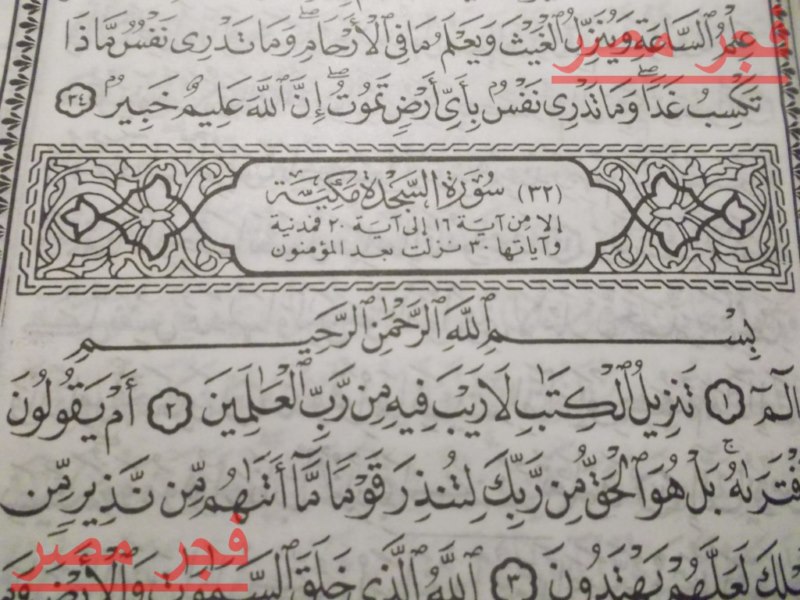 عِلْمُ ٱلسَّاعَةِ وَيُنَزِّلُ ٱلْغَيْثَ وَيَعْلَمُ مَا فِى ٱلْأَرْحَامِ ۖ وَمَا تَدْرِى نَفْسٌ مَّاذَا
تَكْسِبُ غَدًا ۖ وَمَا تَدْرِى نَفْسٌۢ بِأَىِّ أَرْضٍ تَمُوتُ ۚ إِنَّ ٱللَّهَ عَلِيمٌ خَبِيرٌۢ ٣٤
فجر مصر
(٣٢) سُورَةُ السَّجْدَةِ مَكِّيَّة
إلا من آية ١٦ إلى آية ٢٠ فمدنية
وآياتها ٣٠ نزلت بعد المؤمنون
بِسْمِ ٱللَّهِ ٱلرَّحْمَٰنِ ٱلرَّحِيمِ
الٓمٓ ١ تَنزِيلُ ٱلْكِتَٰبِ لَا رَيْبَ فِيهِ مِن رَّبِّ ٱلْعَٰلَمِينَ ٢ أَمْ يَقُولُونَ
ٱفْتَرَىٰهُ ۚ بَلْ هُوَ ٱلْحَقُّ مِن رَّبِّكَ لِتُنذِرَ قَوْمًا مَّآ أَتَىٰهُم مِّن نَّذِيرٍ مِّن
لَعَلَّهُمْ يَهْتَدُونَ ٣ ٱللَّهُ ٱلَّذِى خَلَقَ ٱلسَّمَٰوَٰتِ وَٱلْأَرْضَ
فجر مصر